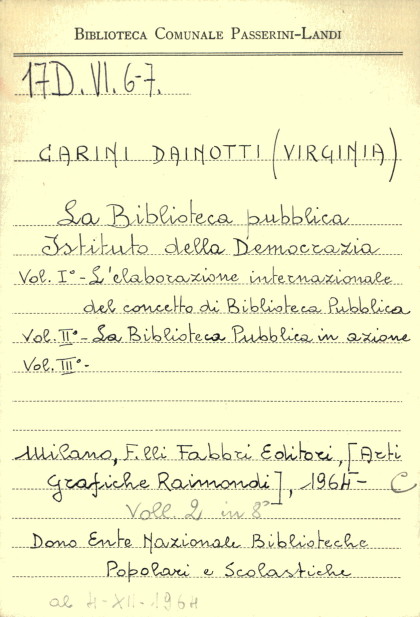 BIBLIOTECA COMUNALE PASSERINI-LANDI
17D.VI.6-7.
CARINI DAINOTTI (VIRGINIA)
La Biblioteca pubblica
Istituto della Democrazia
Vol. I° - L'elaborazione internazionale
del concetto di Biblioteca Pubblica
Vol. II° - La Biblioteca Pubblica in azione
Vol. III° -
Milano, F.lli Fabbri Editori, [Arti
Grafiche Raimondi], 1964 - C
Voll. 2 in 8°
Dono Ente Nazionale Biblioteche
Popolari e Scolastiche
al 4-XII-1964